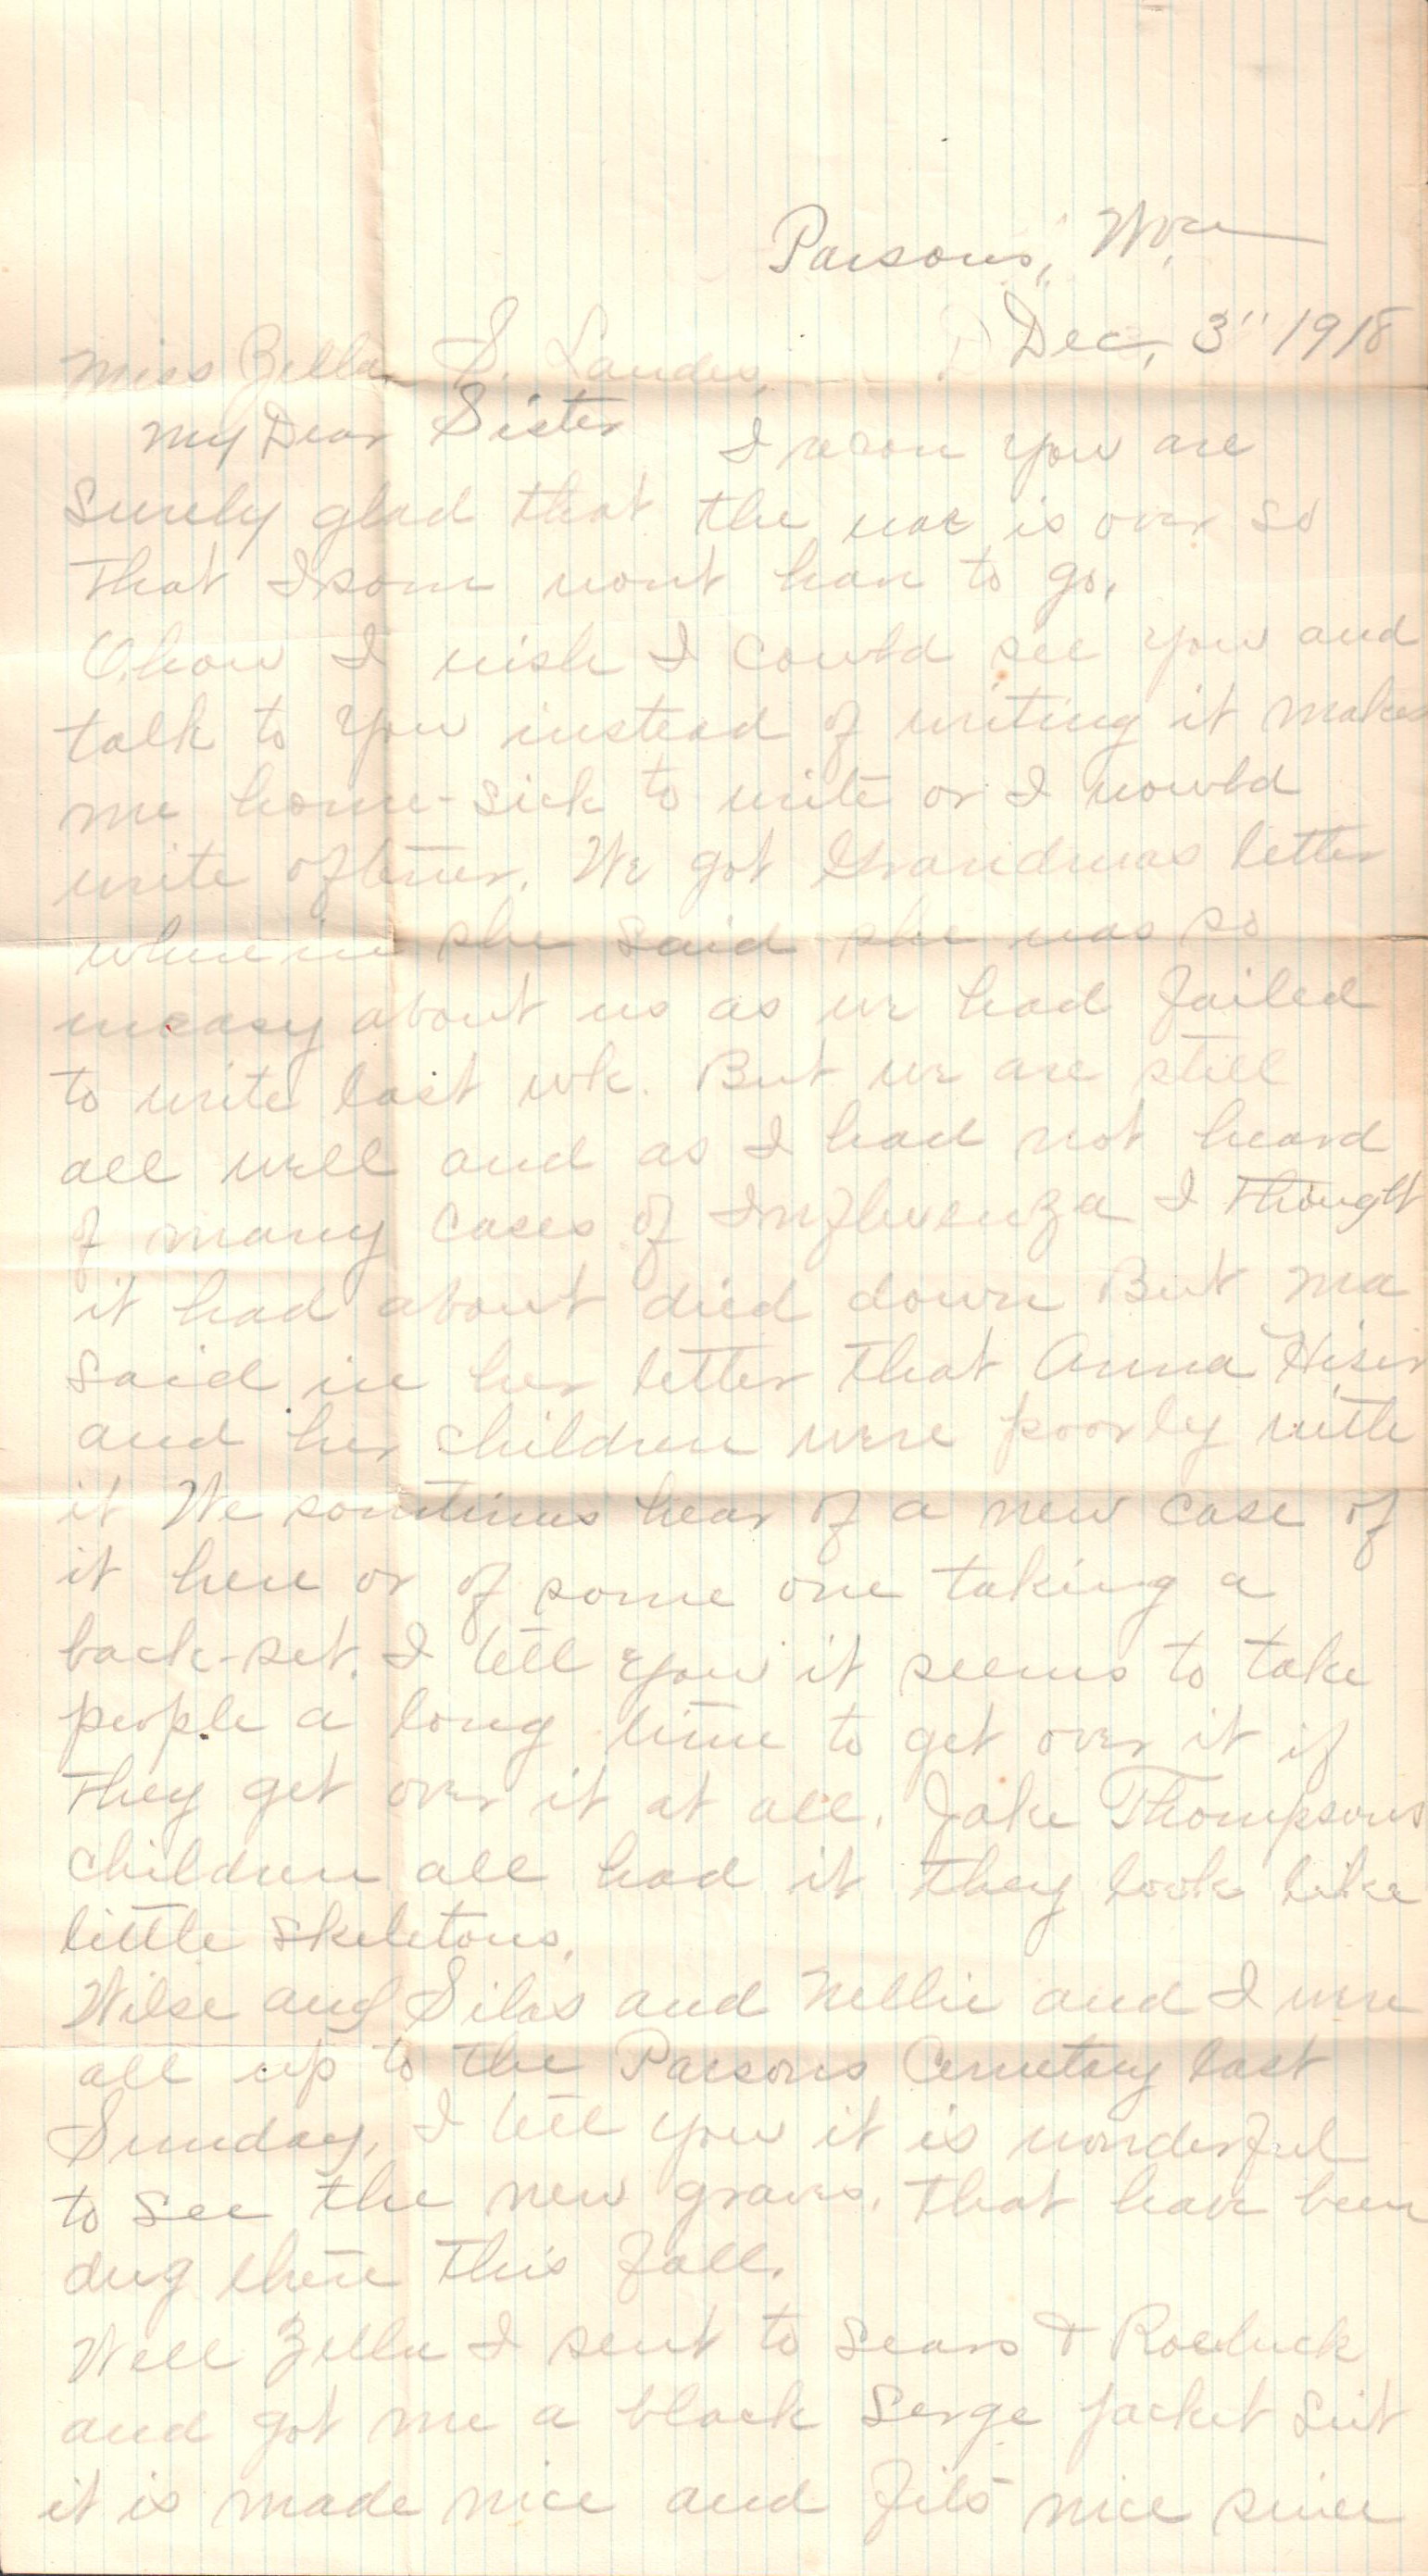 Parsons, W.Va
Dec, 3" 1918
Miss Zella S. Landes,
My Dear Sister I recon you are
Surely glad that the war is over so
that Isom wont have to go.
O, how I wish I could see you and
talk to you instead of writing it makes
me home-sick to write or I would
write oftener. We got Grandmas letter
wherein she said she was so
uneasy about us as we had failed
to write last wk. But we are still
all well and as I had not heard
of many cases of Influenza I thought
it had about died down But ma
said in her letter that Anna Hiser
and her children were poorly with
it We sometimes hear of a new case of
it here or of some one taking a
back-set. I tell you it seems to take
people a long time to get over it if
they get over it at all. Jake Thompsons
children all had it they look like
little skeletons.
Wilse and Silas and Nellie and I were
all up to the Parsons Cemetary last
Sunday, I tell you it is wonderful
to see the new graves. that have been
dug there this fall.
Well Zella I sent to Sears & Roebuck
and got me a black Serge jacket Suit
it is made nice and fits nice since